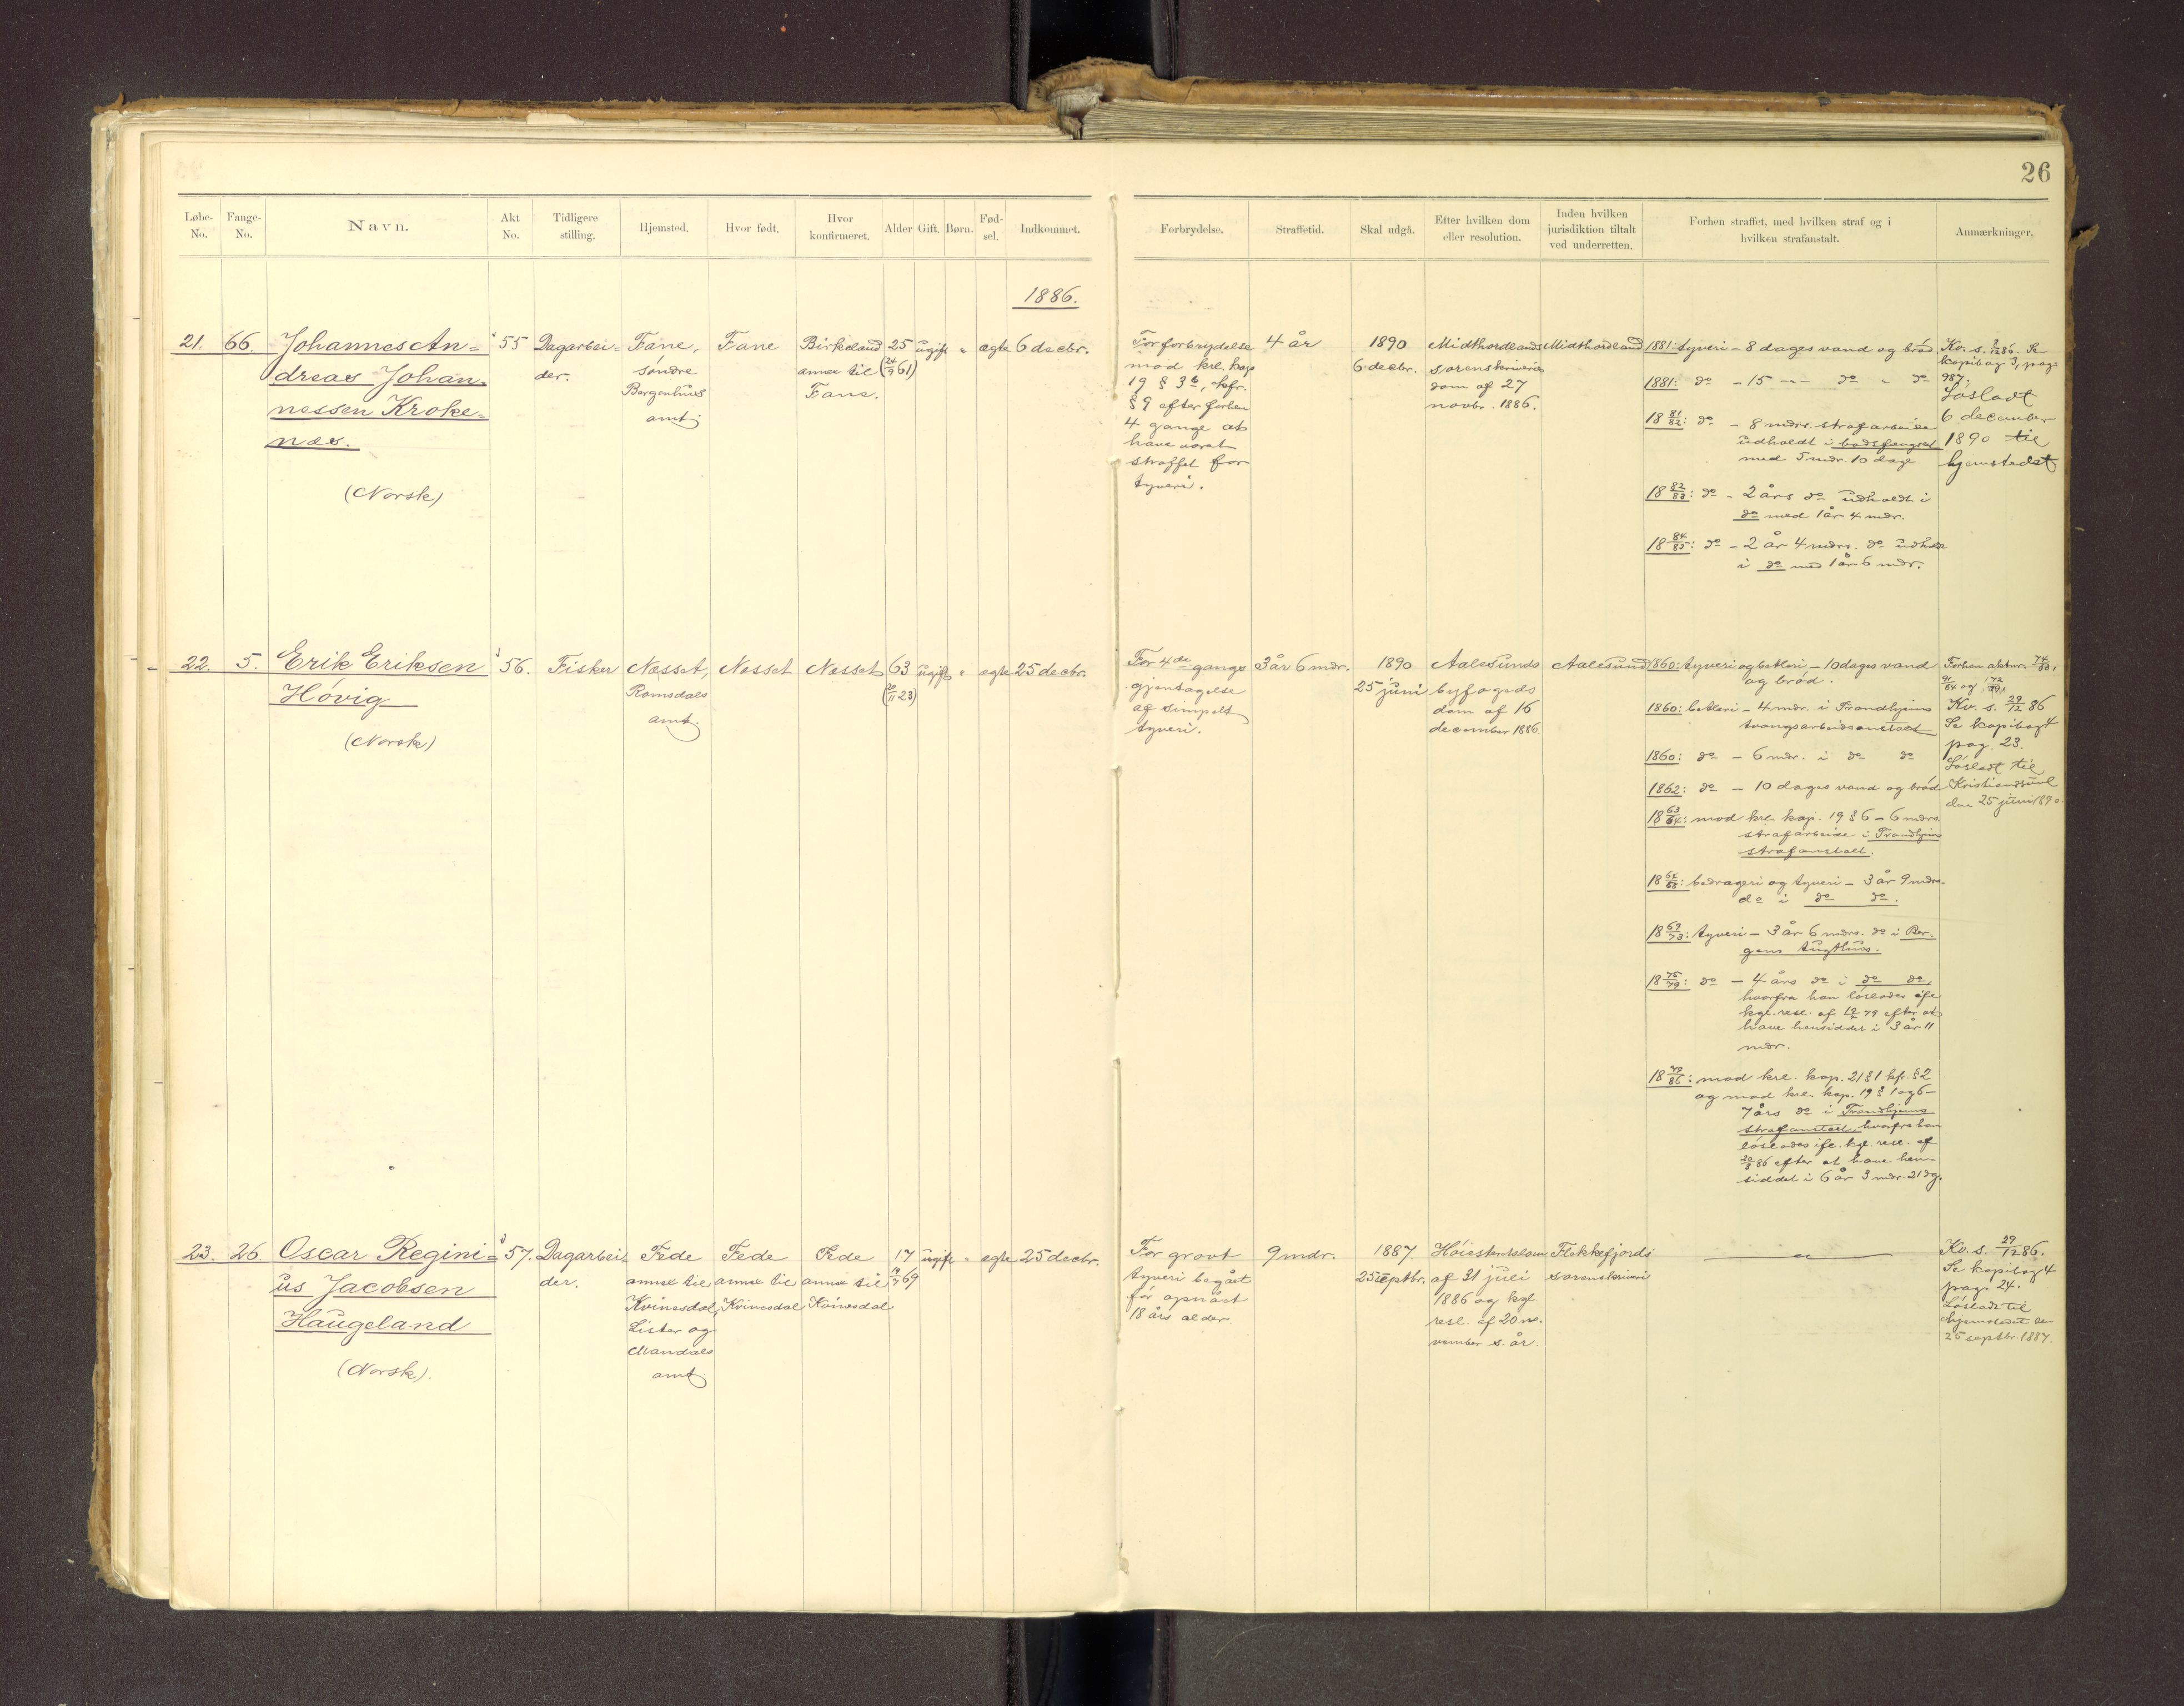 26
Løbe-No. Fange-No. Navn. Akt No. Tidligere stilling. Hjemsted. Hvor født. Hvor konfirmeret. Alder Gift. Børn. Fød-sel. Indkommet. Forbrydelse. Straffetid. Skal udgå. Efter hvilken dom eller resolution. Inden hvilken jurisdiktion tiltalt ved underretten. Forhen straffet, med hvilken straf og i hvilken strafanstalt. Anmærkninger.
1886.
21. 66.
Johannes An=
dreas Johan=
nessen Kroke=
næs.
(Norsk)
55
Dagarbei=
der.
Fane,
søndre
Bergenhus
amt.
Fane
Birkeland
annex til
Fane.
25
(24/9 61)
ugift
"
ægte
6 decbr.
For forbrydelse
mod krl. kap
19 § 3 b, jkfr.
§ 9 efter forhen
4 gange at
have været
straffet for
tyveri.
4 år
1890
6 decbr.
Midthordlands
sorenskriveries
dom af 27
novbr. 1886.
Midthordland
1881: tyveri – 8 dages vand og brød
1881: do – 15 – " – do " do
18 81/82: do – 8 mdrs. strafarbeide
udholdt i bodsfængslet
med 5 mdr. 10 dage
18 82/83: do – 2 års do udholdt i
do med 1 år 4 mdr.
18 84/85: do – 2 år 4 mdrs. do udholdt
i do med 1 år 6 mdr.
Kv. s. /12 86. Se
kopibog 3, pag.
987.
Løsladt
6 december
1890 til
hjemstedet
22. 5.
Erik Eriksen
Høvig
(Norsk)
56.
Fisker
Næsset,
Romsdals
amt.
Næsset
Næsset
63
(20/11 23)
ugift
"
ægte
25 decbr.
For 4de gangs
gjentagelse
af simpelt
tyveri.
3 år 6 mdr.
1890
25 juni
Aalesunds
byfogeds
dom af 16
december 1886
Aalesund
1860: tyveri og betleri – 10 dages vand
og brød.
1860: betleri – 4 mdr. i Trondhjems
tvangsarbeidsanstalt
1860: do – 6 mdr. i do do
1862: do – 10 dages vand og brød
18 63/64: mod krl. kap. 19 § 6 – 6 mdrs
strafarbeide i Trondhjems
strafanstalt.
18 64/68: bedrageri og tyveri – 3 år 9 mdrs.
do i do do.
18 69/73: tyveri – 3 år 6 mdrs. do i Ber=
gens tugthus.
18 75/79: do – 4 års do i do do,
hvorfra han løslades ifl.
kgl. resl. af 79 efter at
have hensiddet i 3 år 11
mdr.
18 79/86: mod krl. kap. 21 § 1 kfr. § 2
og mod krl. kap. 19 § 1 og 6 –
7 års do i Trondhjems
strafanstalt, hvorfra han
løslades ifl. kgl. resl. af
86 efter at have hen=
siddet i 6 år 3 mdr. 21 dg.
Forhen aktnr. 74/80,
91/84 og 172/79.
Kv. s. 29/12 86
Se kopibog 4
pag. 23.
Løsladt til
Kristianssund
den 25 juni 1890.
23. 26.
Oscar Regini=
us Jacobsen
Haugeland
(Norsk).
57.
Dagarbei=
der.
Fede
annex til
Kvinesdal,
Lister og
Mandals
amt.
Fede
annex til
Kvinesdal
Fede
annex til
Kvinesdal
17
/7 69
ugift
"
ægte
25 decbr.
For grovt
tyveri begået
før opnået
18 års alder.
9 mdr.
1887.
25 septbr.
Høiesteretsdom
af 31 juli
1886 og kgl.
resl. af 20 no=
vember s. år
Flekkefjords
sorenskriveri
– " –
Kv. s. 29/12 86.
Se kopibog 4
pag. 24.
Løsladt til
hjemstedet den
25 septbr. 1887.